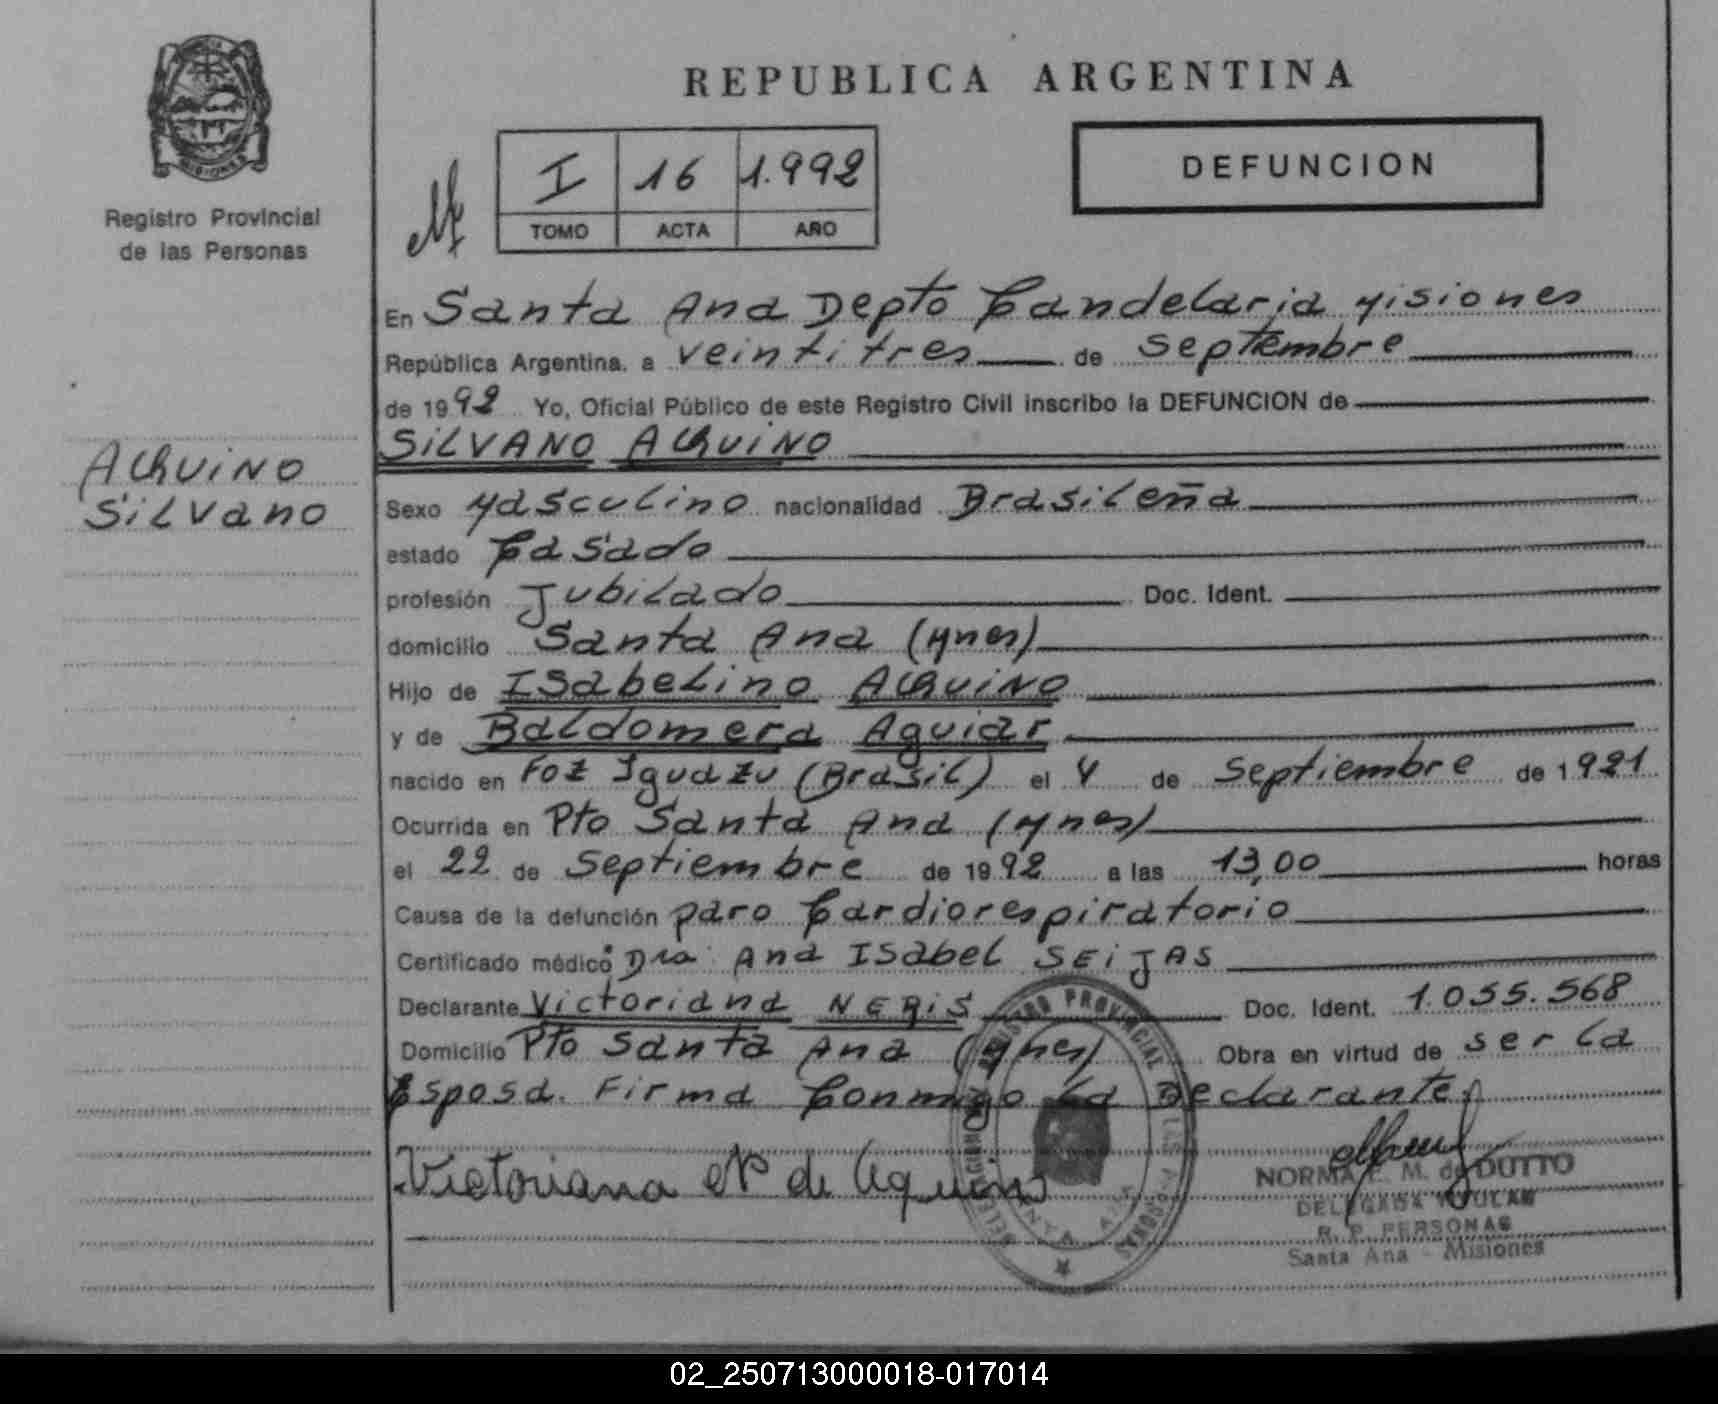 REPUBLICA ARGENTINA
MISIONES
Registro Provincial
de las Personas
I 16 1.992
TOMO ACTA AÑO
DEFUNCION
En Santa Ana Depto Candelaria Misiones
República Argentina, a veintitres de Septiembre
de 1992 Yo, Oficial Público de este Registro Civil inscribo la DEFUNCION de
SILVANO AQUINO
AQUINO
SILVANO
Sexo Masculino nacionalidad Brasileña
estado Casado
profesión Jubilado Doc. Ident.
domicilio Santa Ana (Mnes)
Hijo de Isabelino AQUINO
y de Baldomera Aguiar
nacido en Foz Iguazu (Brasil) el 4 de Septiembre de 1921
Ocurrida en Pto Santa Ana (Mnes)
el 22 de Septiembre de 1992 a las 13,00 horas
Causa de la defunción paro Cardiorespiratorio
Certificado médico Dra. Ana Isabel SEIJAS
Declarante Victoriana NERIS Doc. Ident. 1.055.568
Domicilio Pto Santa Ana (Mnes) Obra en virtud de ser la
Esposa. Firma Conmigo la Declarante.
Victoriana N de Aquino
REGISTRO PROVINCIAL DE LAS PERSONAS
DELEGACION
SANTA ANA
NORMA E. M. de DUTTO
DELEGADA TITULAR
R. P. PERSONAS
Santa Ana - Misiones
02_250713000018-017014